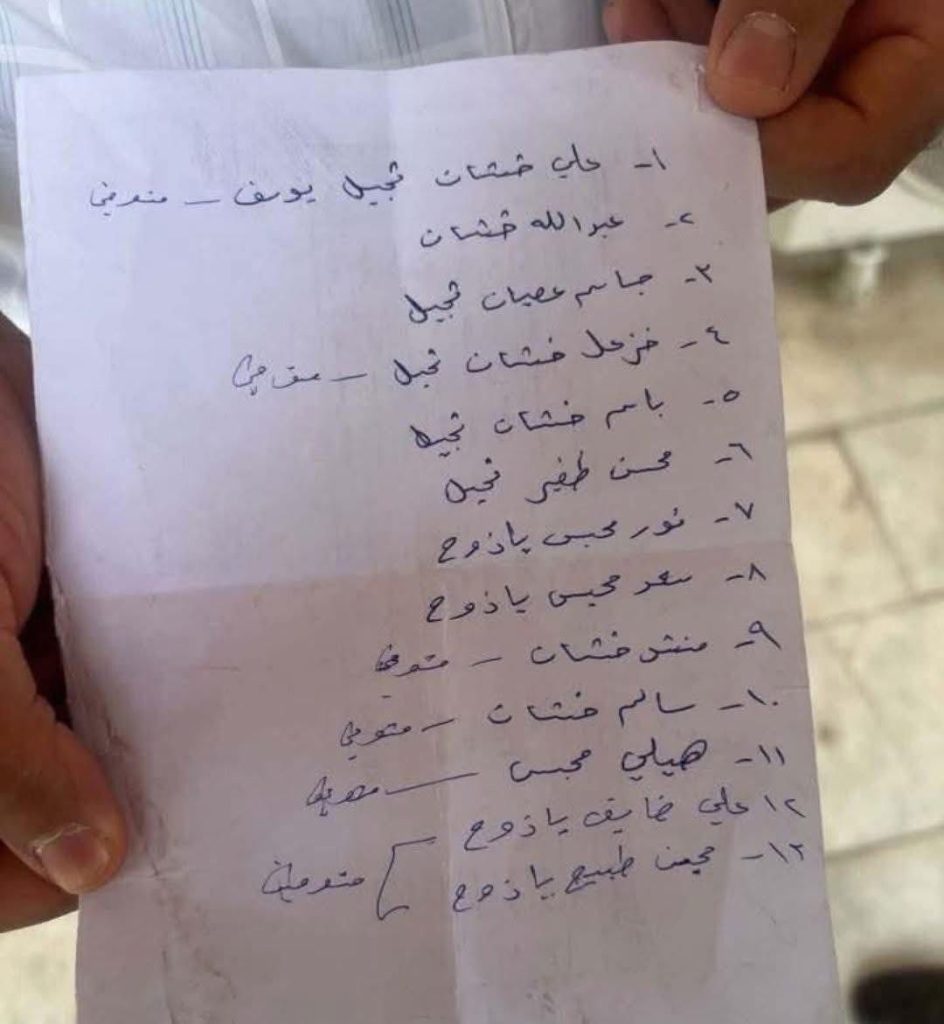 ١- علي خشان ثجيل يوسف – متوفي
٢- عبدالله خشان
٣- جاسم عصيان ثجيل
٤- خزعل خشان ثجيل – متوفي
٥- باسم خشان ثجيل
٦- محسن ثجيل
٧- نور محيس ياذوح
٨- سعد محيس ياذوح
٩- خشان – متوفي
١٠- سالم خشان – متوفي
١١- هيلي محيس – متوفي
١٢ علي ضايف ياذوح
١٣- ياذوح
متوفيان